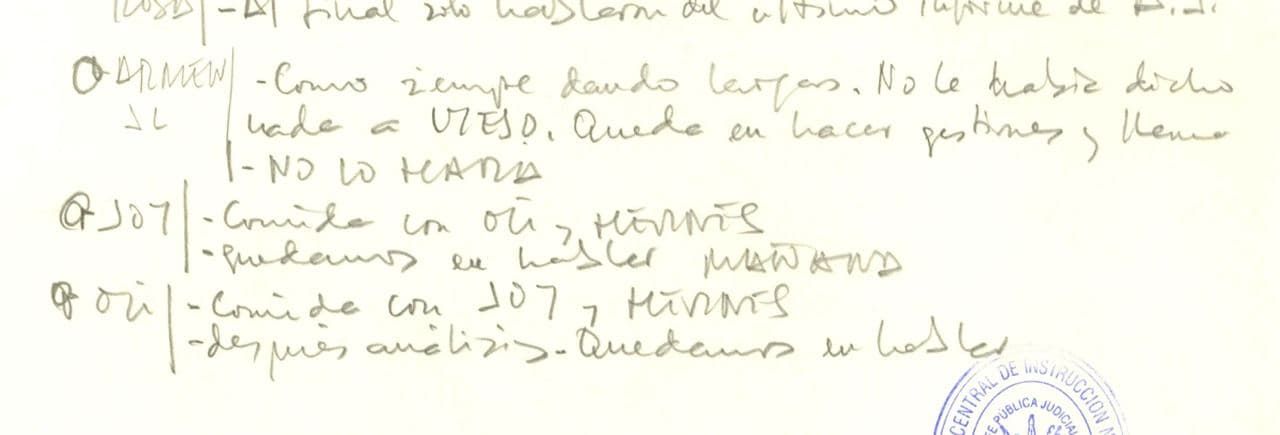 ROSA -Al final solo hablaron del último informe de A.J.
ARMEN -Como siempre dando largas. No le había dicho
JL nada a VIESO. Queda en hacer gestiones y llama
-NO LO HARA
JOY -Comida con Oti y
-quedamos en hablar MAÑANA
Oti -Comida con JOY y
-después análisis. Quedamos en hablar
CENTRAL DE INSTRUCCION N
PÚBLICA JUDICIAL